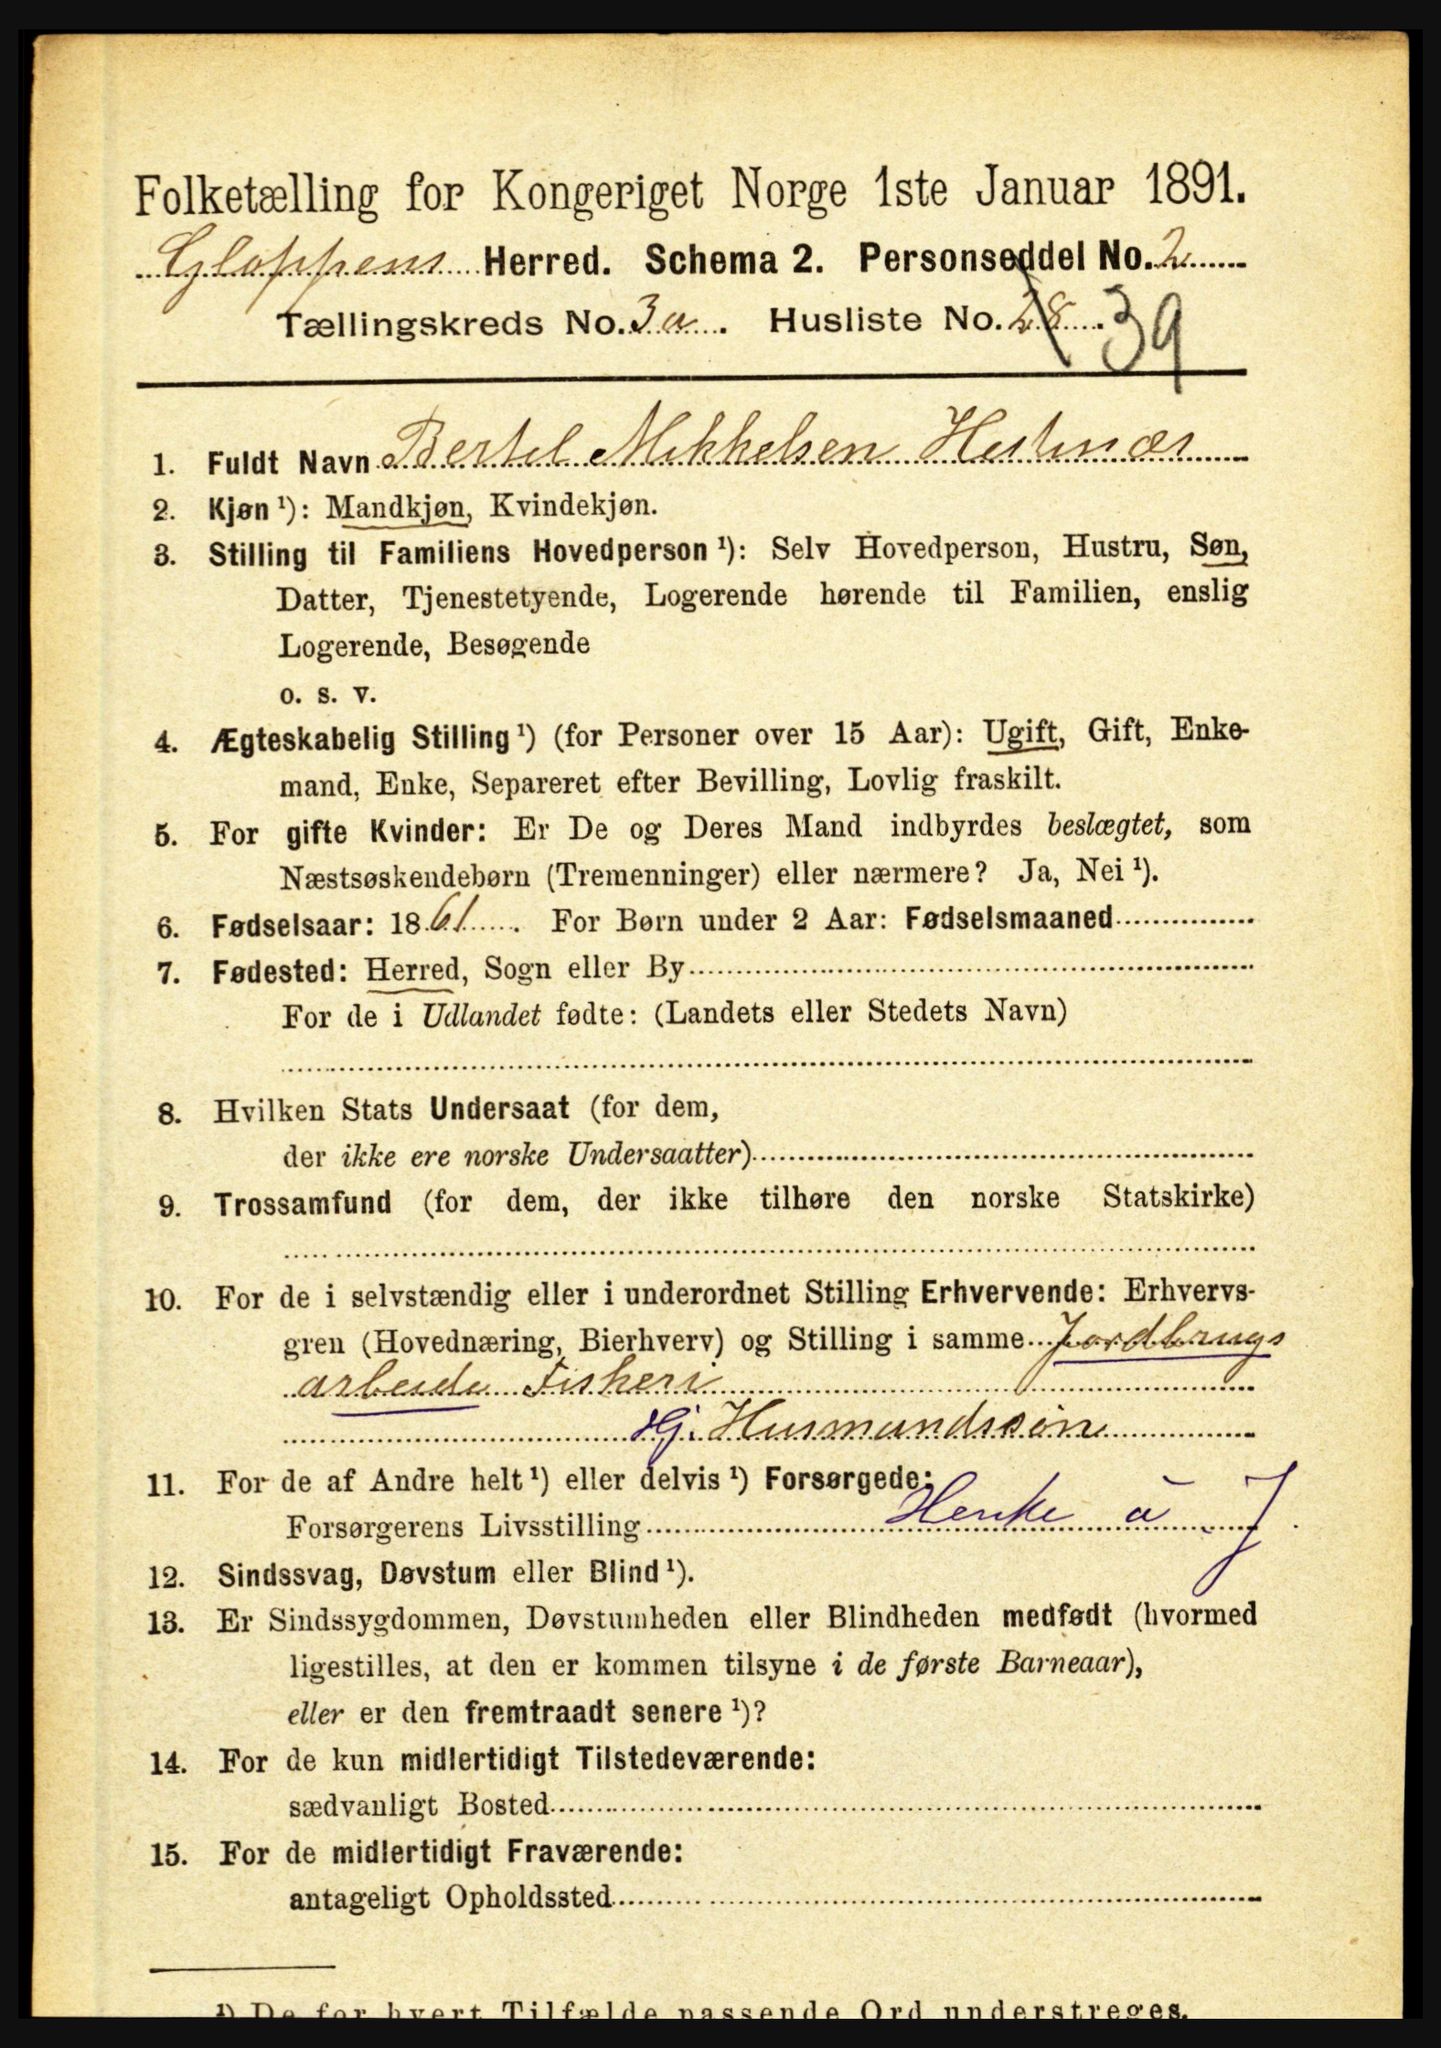 Folketælling for Kongeriget Norge 1ste Januar 1891.
Gloppens Herred. Schema 2. Personseddel No. 2
Tællingskreds No. 3a. Husliste No. 28. 39
1. Fuldt Navn Bertel Mikkelsen Hestnær
2. Kjøn ¹): Mandkjøn, Kvindekjøn.
3. Stilling til Familiens Hovedperson ¹): Selv Hovedperson, Hustru, Søn,
Datter, Tjenestetyende, Logerende hørende til Familien, enslig
Logerende, Besøgende
o. s. v.
4. Ægteskabelig Stilling ¹) (for Personer over 15 Aar): Ugift, Gift, Enke-
mand, Enke, Separeret efter Bevilling, Lovlig fraskilt.
5. For gifte Kvinder: Er De og Deres Mand indbyrdes beslægtet, som
Næstsøskendebørn (Tremenninger) eller nærmere? Ja, Nei ¹).
6. Fødselsaar: 1861. For Børn under 2 Aar: Fødselsmaaned
7. Fødested: Herred, Sogn eller By
For de i Udlandet fødte: (Landets eller Stedets Navn)
8. Hvilken Stats Undersaat (for dem,
der ikke ere norske Undersaatter)
9. Trossamfund (for dem, der ikke tilhøre den norske Statskirke)
10. For de i selvstændig eller i underordnet Stilling Erhvervende: Erhvervs-
gren (Hovednæring, Bierhverv) og Stilling i samme Jordbrugs
arbeide Fiskeri
Hj. Husmandssøn
11. For de af Andre helt ¹) eller delvis ¹) Forsørgede:
Forsørgerens Livsstilling
12. Sindssvag, Døvstum eller Blind ¹).
13. Er Sindssygdommen, Døvstumheden eller Blindheden medfødt (hvormed
ligestilles, at den er kommen tilsyne i de første Barneaar),
eller er den fremtraadt senere ¹)?
14. For de kun midlertidigt Tilstedeværende:
sædvanligt Bosted
15. For de midlertidigt Fraværende:
antageligt Opholdssted
¹) De for hvert Tilfælde passende Ord understreges.